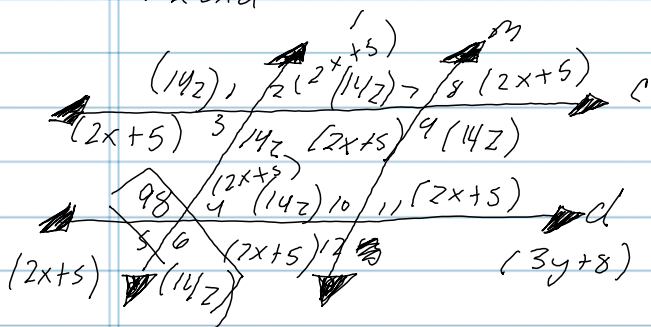 l m
(14z) 1 2 (2x+5) (14z) 7 8 (2x+5) c
(2x+5) 3 14z (2x+5) 9 (14z)
(2x+5)
98 4 (14z) 10 11 (2x+5) d
5 6 (2x+5) 12
(2x+5) (14z) (3y+8)